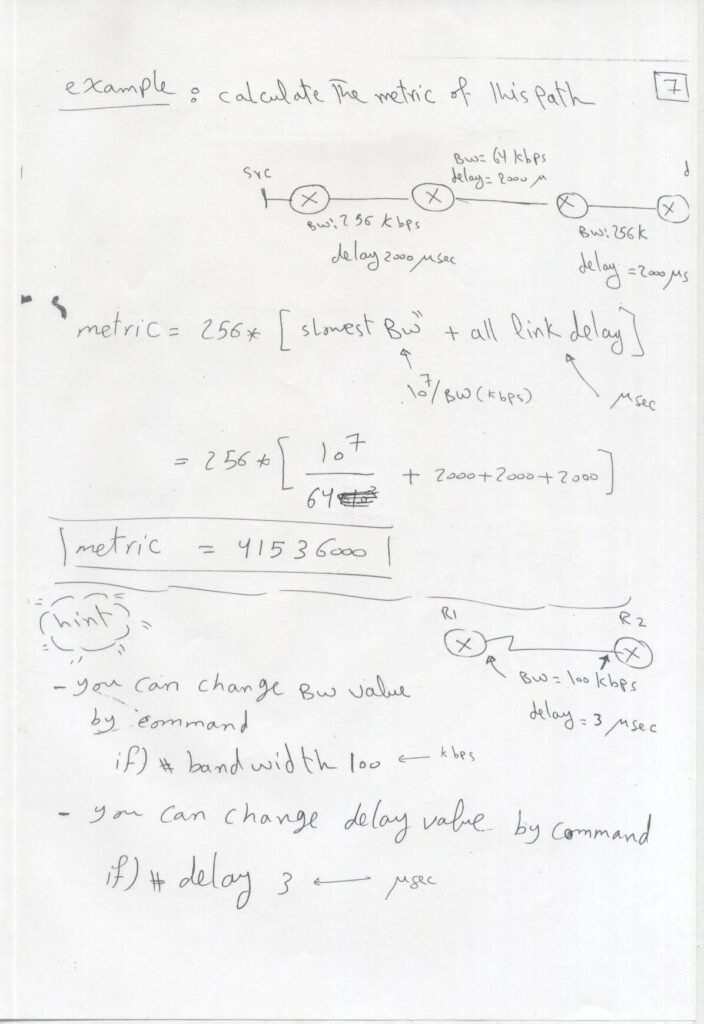 example : calculate The metric of this path
7
src
BW= 64 kbps
delay= 2000 μ
d
BW: 256 kbps
delay 2000 μsec
BW: 256K
delay = 2000 μs
metric = 256* [ slowest BW" + all link delay]
10^7/BW (kbps)
μsec
= 256 * [ 10^7 / 64 + 2000+2000+2000 ]
metric = 41536000
hint
R1
R2
BW= 100 kbps
delay= 3 μsec
- you can change BW value
by command
if) # bandwidth 100 ← kbps
- you can change delay value by command
if) # delay 3 ← μsec